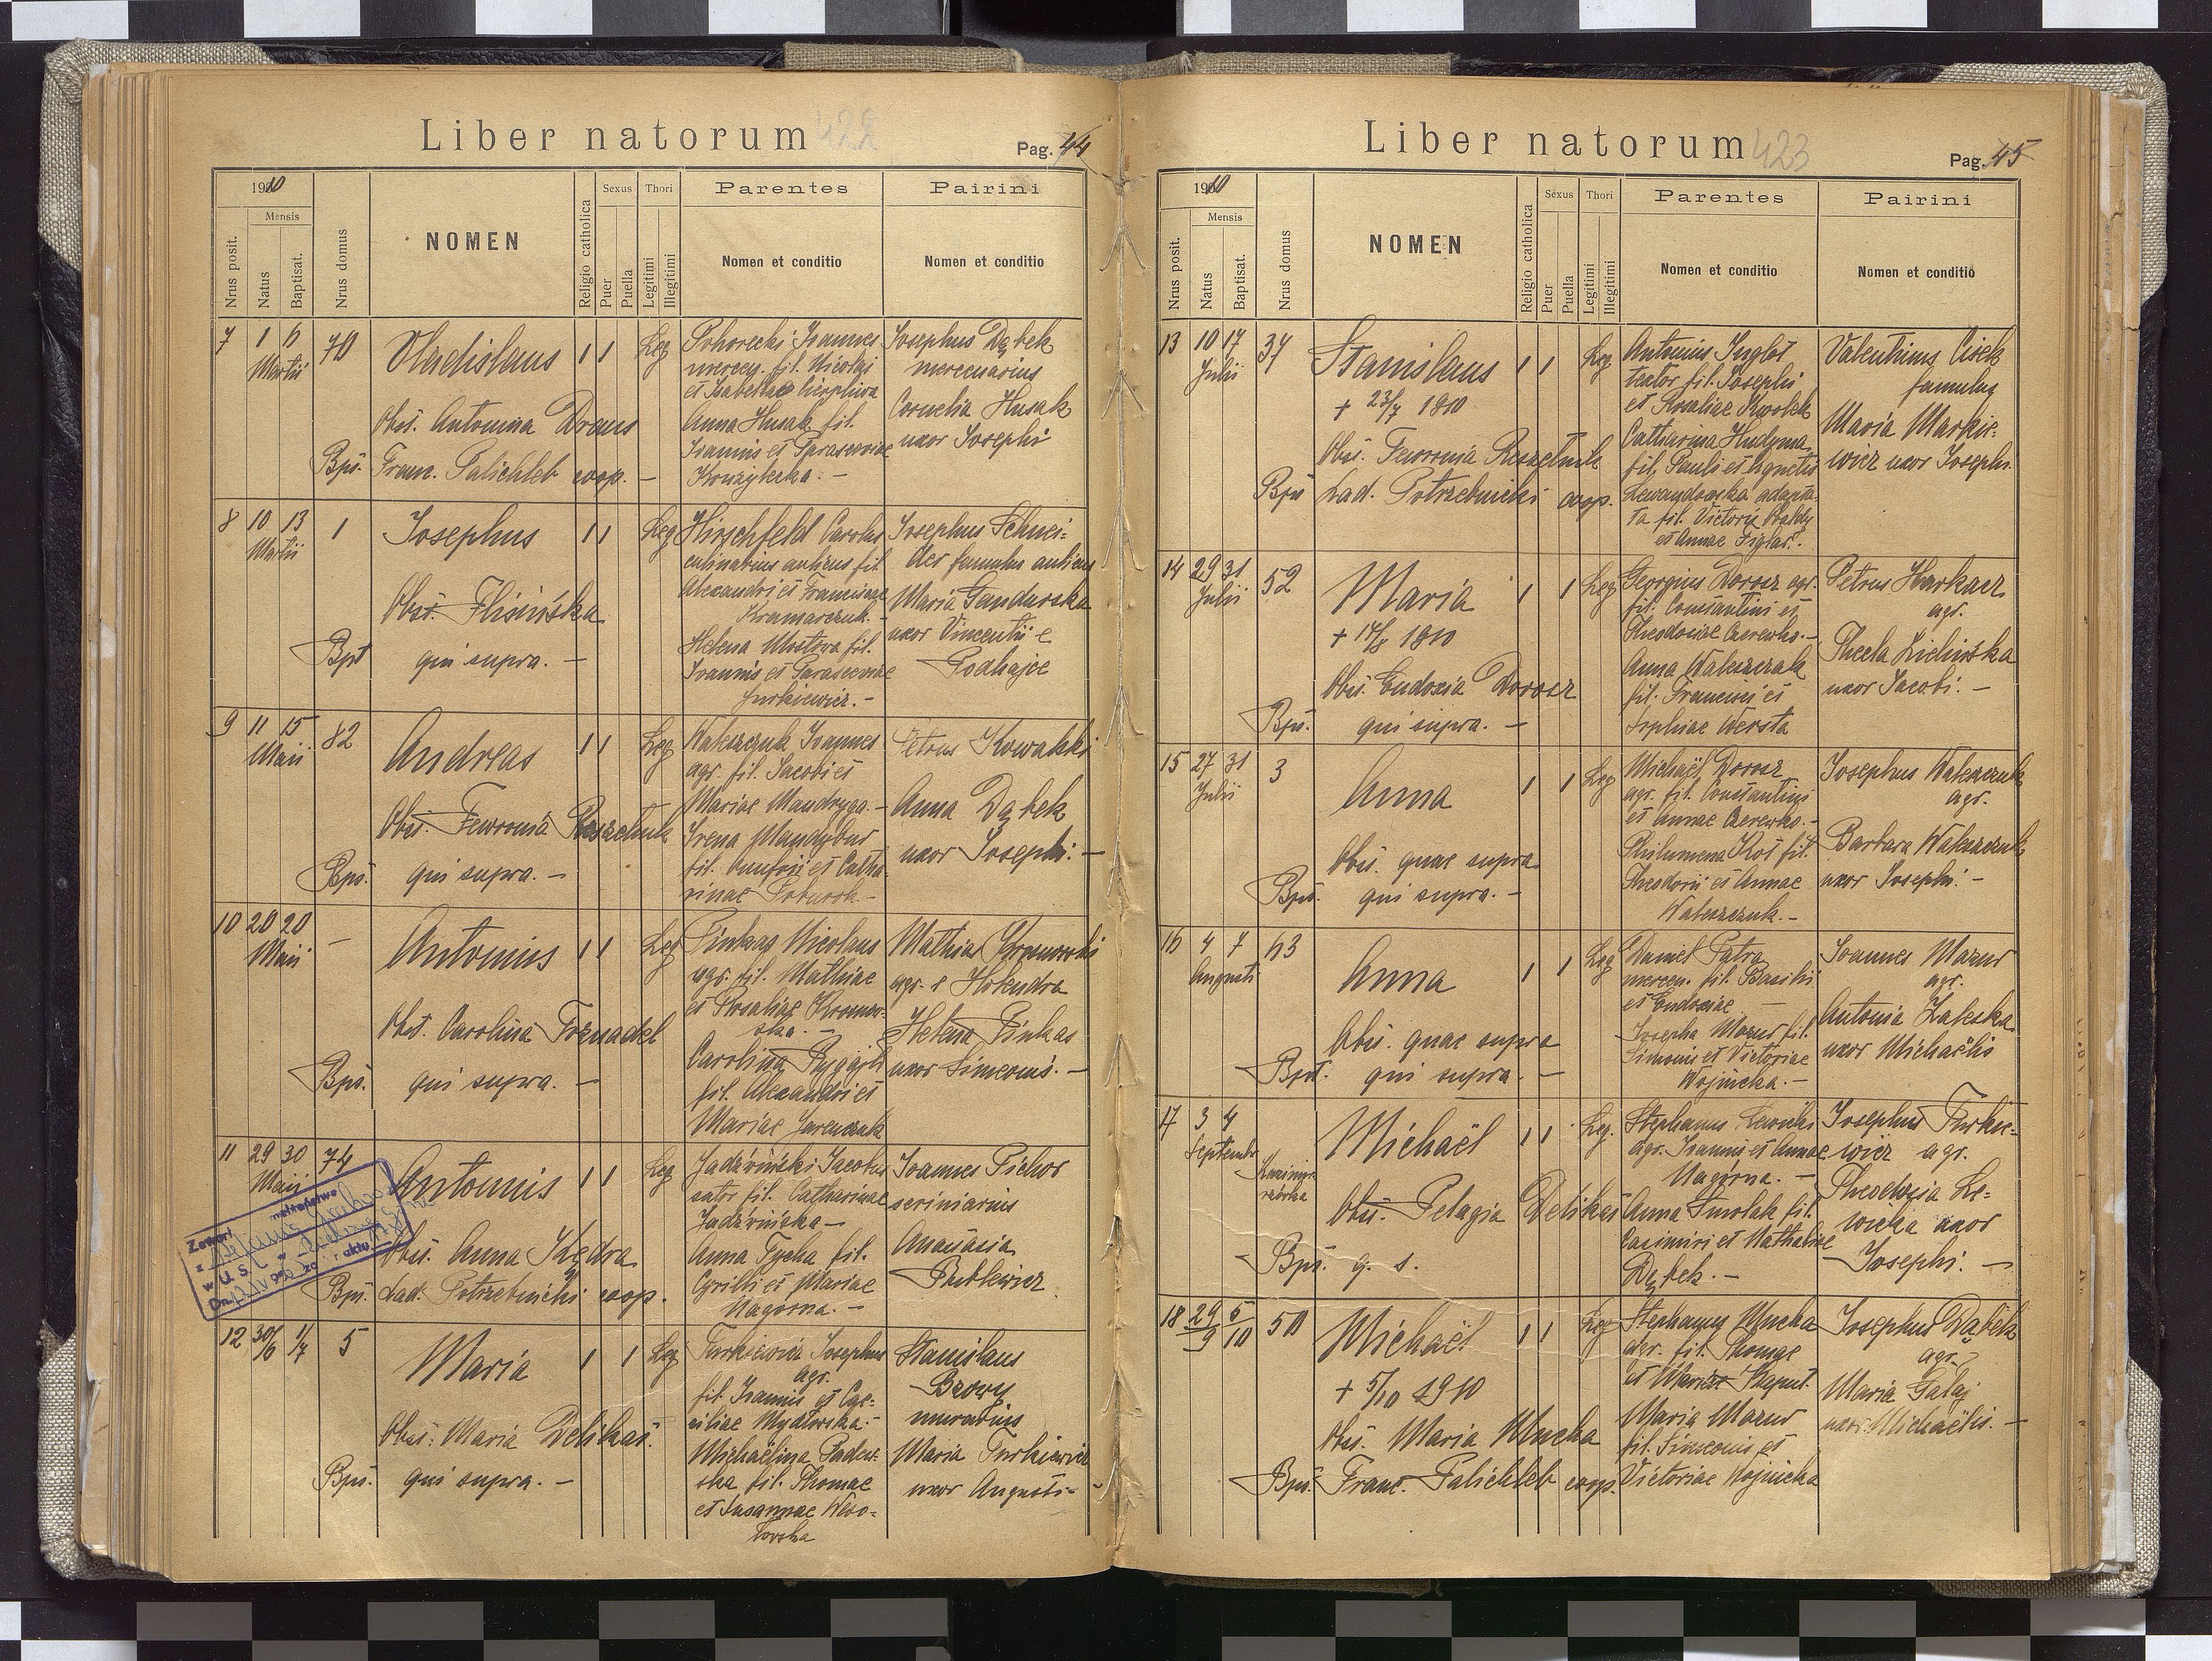 Liber natorum 422
Pag. 44
1910
Mensis
Nrus posit.
Natus
Baptisat.
Nrus domus
NOMEN
Religio catholica
Sexus
Puer
Puella
Thori
Legitimi
Illegitimi
Parentes
Nomen et conditio
Pairini
Nomen et conditio
7 1 6 70
Martii
Vladislaus 1 1 Leg
Obst. Antonina Draus
Bpt. Franc. Palichleb coop. -
Pohorecki Joannes
mercen. fil. Nicolai
et Isabellae
Anna Husak fil.
Joannis et Parasceviae
Josephus Dąbek
mercenarius
Cornelia Husak
uxor Josephi
8 10 13 1
Martii
Josephus 1 1 Leg
Obst.
Bpt qui supra. -
Hirschfeld Carolus
culinarius aulicus fil
Alexandri et Franciscae
Kramarczuk. -
Helena fil.
Joannis et Parasceviae
Jurkiewicz. -
Josephus Schnei=
der famulus aulicus
Maria Gandurska
uxor Vincentii e
Podhajce
9 11 15 82
Maii
Andreas 1 1 Leg
Obst. Fewronia Reszetnik
Bpt. qui supra. -
Waleszczuk Joannes
agr. fil. Jacobi et
Mariae Mandryga. -
Irena Mandybur
fil. Onufrii et Catha
rinae
Petrus Kowalski
Anna Dąbek
uxor Josephi. -
10 20 20 -
Maii
Antonius 1 1 Leg
Obst. Carolina Trznadel
Bpt. qui supra. -
Pinkas Nicolaus
agr. fil. Mathiae
et Rosaliae Kromow=
ska. -
Carolina
fil. Alexandri et
Mariae Jaremczuk
Mathias
agr. e Holendra
Helena Pinkas
uxor Simeonis. -
11 29 30 74
Maii
Antonius 1 1 Leg
Obst. Anna Kędra
Bpt. Lad. Potrzebnicki coop.
Jadźwiński Jacobus
sutor fil. Catharinae
Jadźwińska -
Anna Tycha fil.
Cyrilli et Mariae
Nagórna. -
Joannes Pichor
scriniarius
Anastasia
12 30/6 1/7 5
Maria 1 1 Leg
Obst. Maria Delikat.
Bpt. qui supra. -
Turkiewicz Josephus
agr.
fil. Joannis et Cae=
ciliae Mydłowska. -
Michaëlina Padew=
ska fil. Thomae
et Susannae Weso=
łowska
Stanislaus
Brzowy
murarius
Maria Turkiewicz
uxor Augusti -
Liber natorum 423
Pag. 45
1910
Mensis
Nrus posit.
Natus
Baptisat.
Nrus domus
NOMEN
Religio catholica
Sexus
Puer
Puella
Thori
Legitimi
Illegitimi
Parentes
Nomen et conditio
Pairini
Nomen et conditio
13 10 17 34
Julii
Stanislaus 1 1 Leg
+ 23/7 1810
Obst. Fewronia Reszetnik
Bpt Lad. Potrzebnicki coop.
Antonius Inglot
textor fil. Josephi
et Rosaliae Kwolek
Catharina Hudyma
fil. Pauli et Agnetis
Lewandowska adapta
ta fil. Victoris
et Annae Figlar. -
Valentinus Cisek
famulus
Maria Markie=
wicz uxor Josephi
14 29 31 52
Julii
Maria 1 1 Leg
Obst. Eudoxia Dorosz
Bpt. qui supra. -
Georgius Dorosz agr.
fil. Constantini et
Theodosiae Czerewko. -
Anna Waleszczak
fil. Francisci et
Sophiae Wersta
Petrus Harkacz
agr.
Thecla Lichińska
uxor Jacobi. -
15 27 31 3
Julii
Anna 1 1 Leg
Obst. quae supra
Bpt. qui supra. -
Michaël Dorosz
agr. fil. Constantini
et Annae Czerewko. -
Philumena Kos fil.
Theodori et Annae
Waleszczuk. -
Josephus Waleszczuk
agr.
Barbara Waleszczuk
uxor Josephi -
16 4 7 63
Augusti
Anna 1 1 Leg
Obst. quae supra
Bpt. qui supra. -
Daniel Patra
mercen. fil. Basilii
et Eudoxiae -
Josepha Mazur fil.
Simonis et Victoriae
Wojnicka. -
Joannes Mazur
agr.
Antonia Zaleska
uxor Michaëlis
17 3 4
Septembr
Michaël 1 1 Leg.
Obst. Pelagia Delikat
Bpt. q. s.
Stephanus Lewicki
agr. Joannis et Annae
Nagórna. -
Anna Smolak fil.
Casimiri et Nathaliae
Dąbek. -
Josephus Turkie=
wicz agr.
Theodozia Le=
wicka uxor
Josephi. -
18 29/9 5/10 50
Michaël 1 1 Leg
+ 5/10 1910
Obst. Maria Mucha
Bpt. Franc. Palichleb coop.
Stephanus Mucha
agr. fil. Thomae
et Mariae Kaput.
Maria Mazur
fil. Simeonis et
Victoriae Wojnicka
Josephus Dąbek
agr.
Maria Galaj
uxor Michaëlis. -